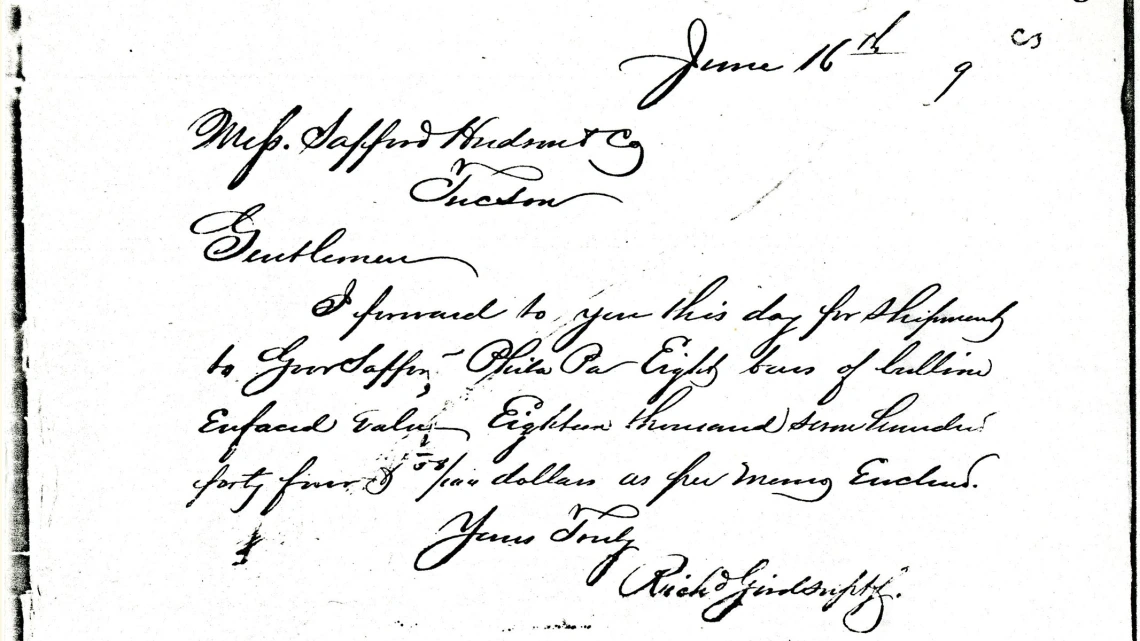 June 16th 9
Mess. Safford Hudson & Co
Tucson
Gentlemen
I forward to you this day for shipment
to Gov Saffor Phila Pa Eight bars of bullion
Enfaced value Eighteen thousand seven hundred
forty four & 58/100 dollars as per memo Enclosed.
Yours Truly
Richd Gird Supt